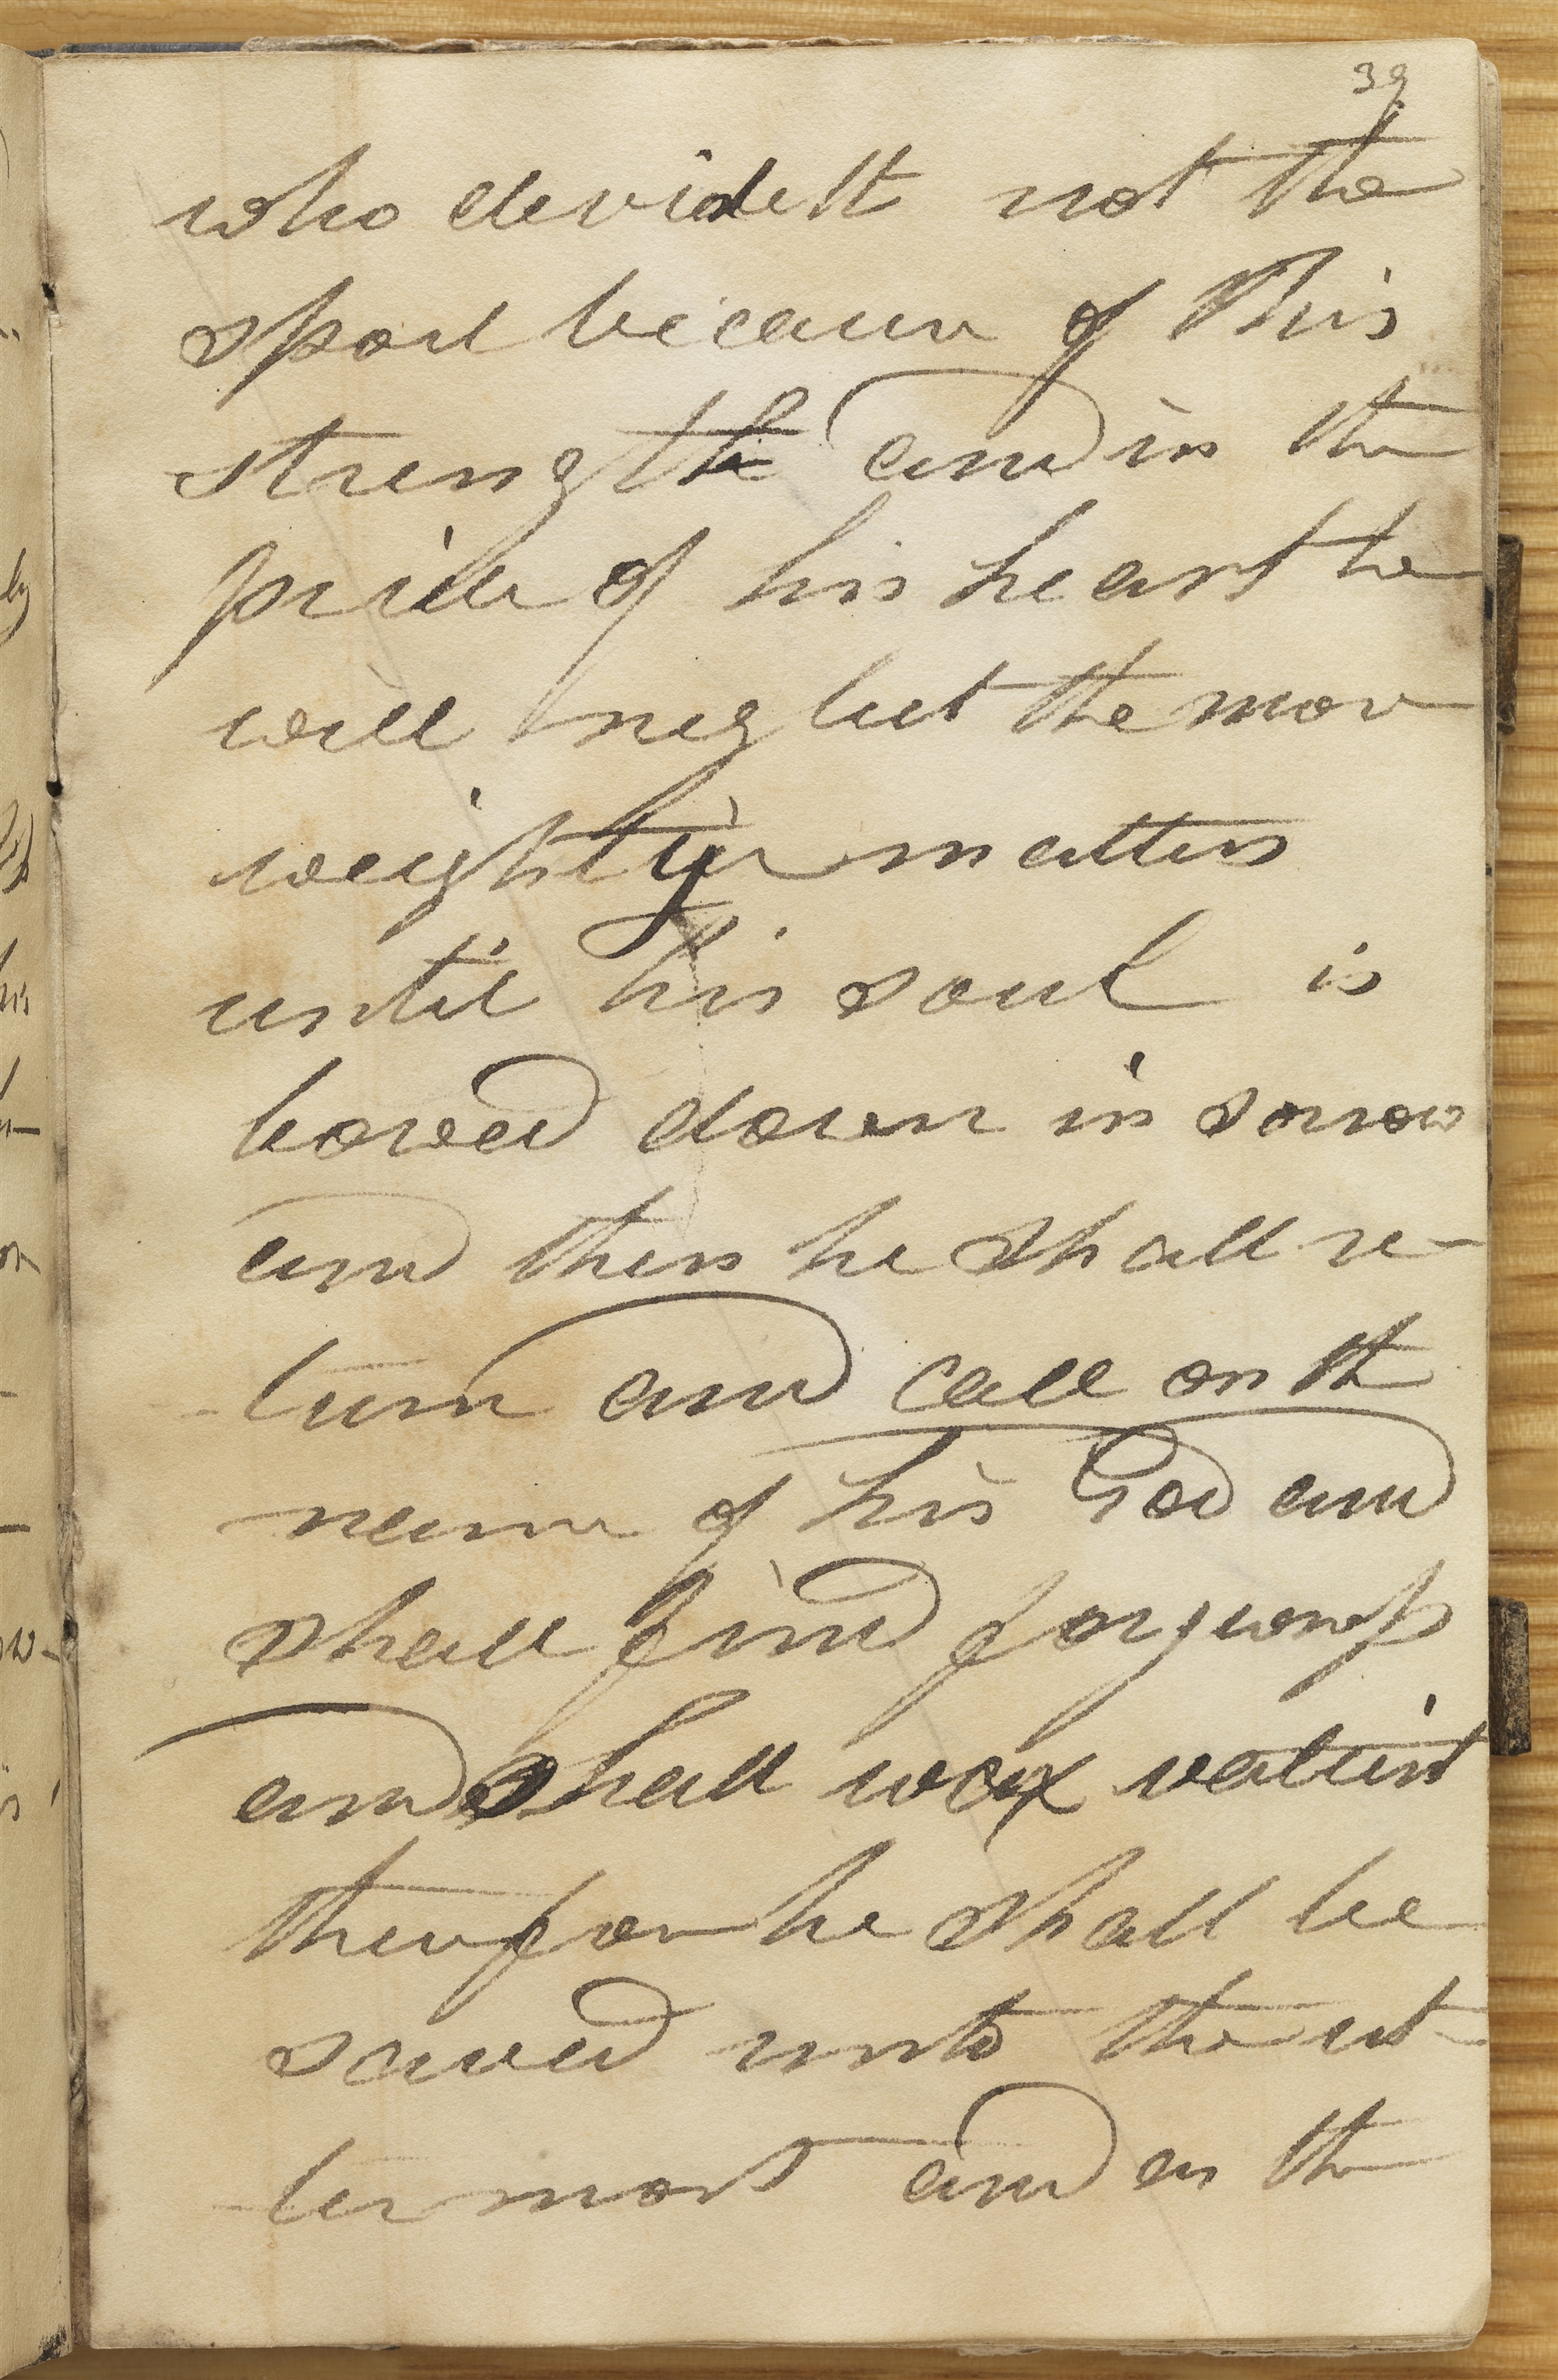 39
who devideth not the
spoil because of his
strength and in the
pride of his heart he
will neglect the more
weightyer matters
until his soul is
bowed down in sorrow
and then he shall re-
turn and call on th
name of his God and
shall find forgivness
and shall wax valient
therefore he shall be
saved unto the ut
termost and as the